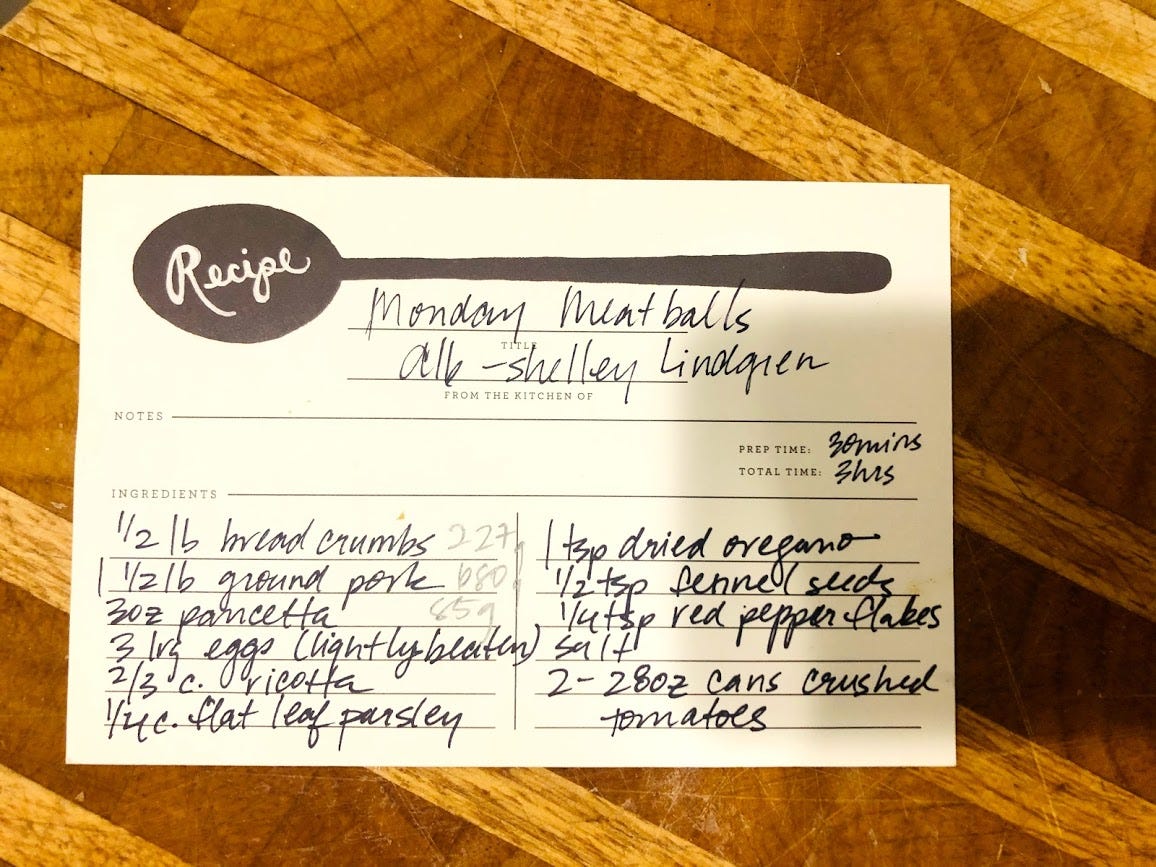 Recipe
Monday Meatballs
TITLE
A16 - Shelley Lindgren
FROM THE KITCHEN OF
NOTES
PREP TIME: 30mins
TOTAL TIME: 3hrs
INGREDIENTS
1/2 lb bread crumbs 227g
1 1/2 lb ground pork 680g
3oz pancetta 85g
3 lrg eggs (lightly beaten)
2/3 c. ricotta
1/4 c. flat leaf parsley
1 tsp dried oregano
1/2 tsp fennel seeds
1/4 tsp red pepper flakes
salt
2- 28oz cans crushed
tomatoes